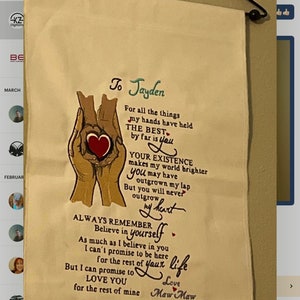 To Jayden
For all the things
my hands have held
THE BEST
by far is you
YOUR EXISTENCE
makes my world brighter
you may have
outgrown my lap
But you will never
outgrow
my heart
ALWAYS REMEMBER
Believe in yourself
As much as I believe in you
I can't promise to be here
for the rest of your life
But I can promise to
LOVE YOU
for the rest of mine
Love
Maw Maw
MARCH
FEBRUAR